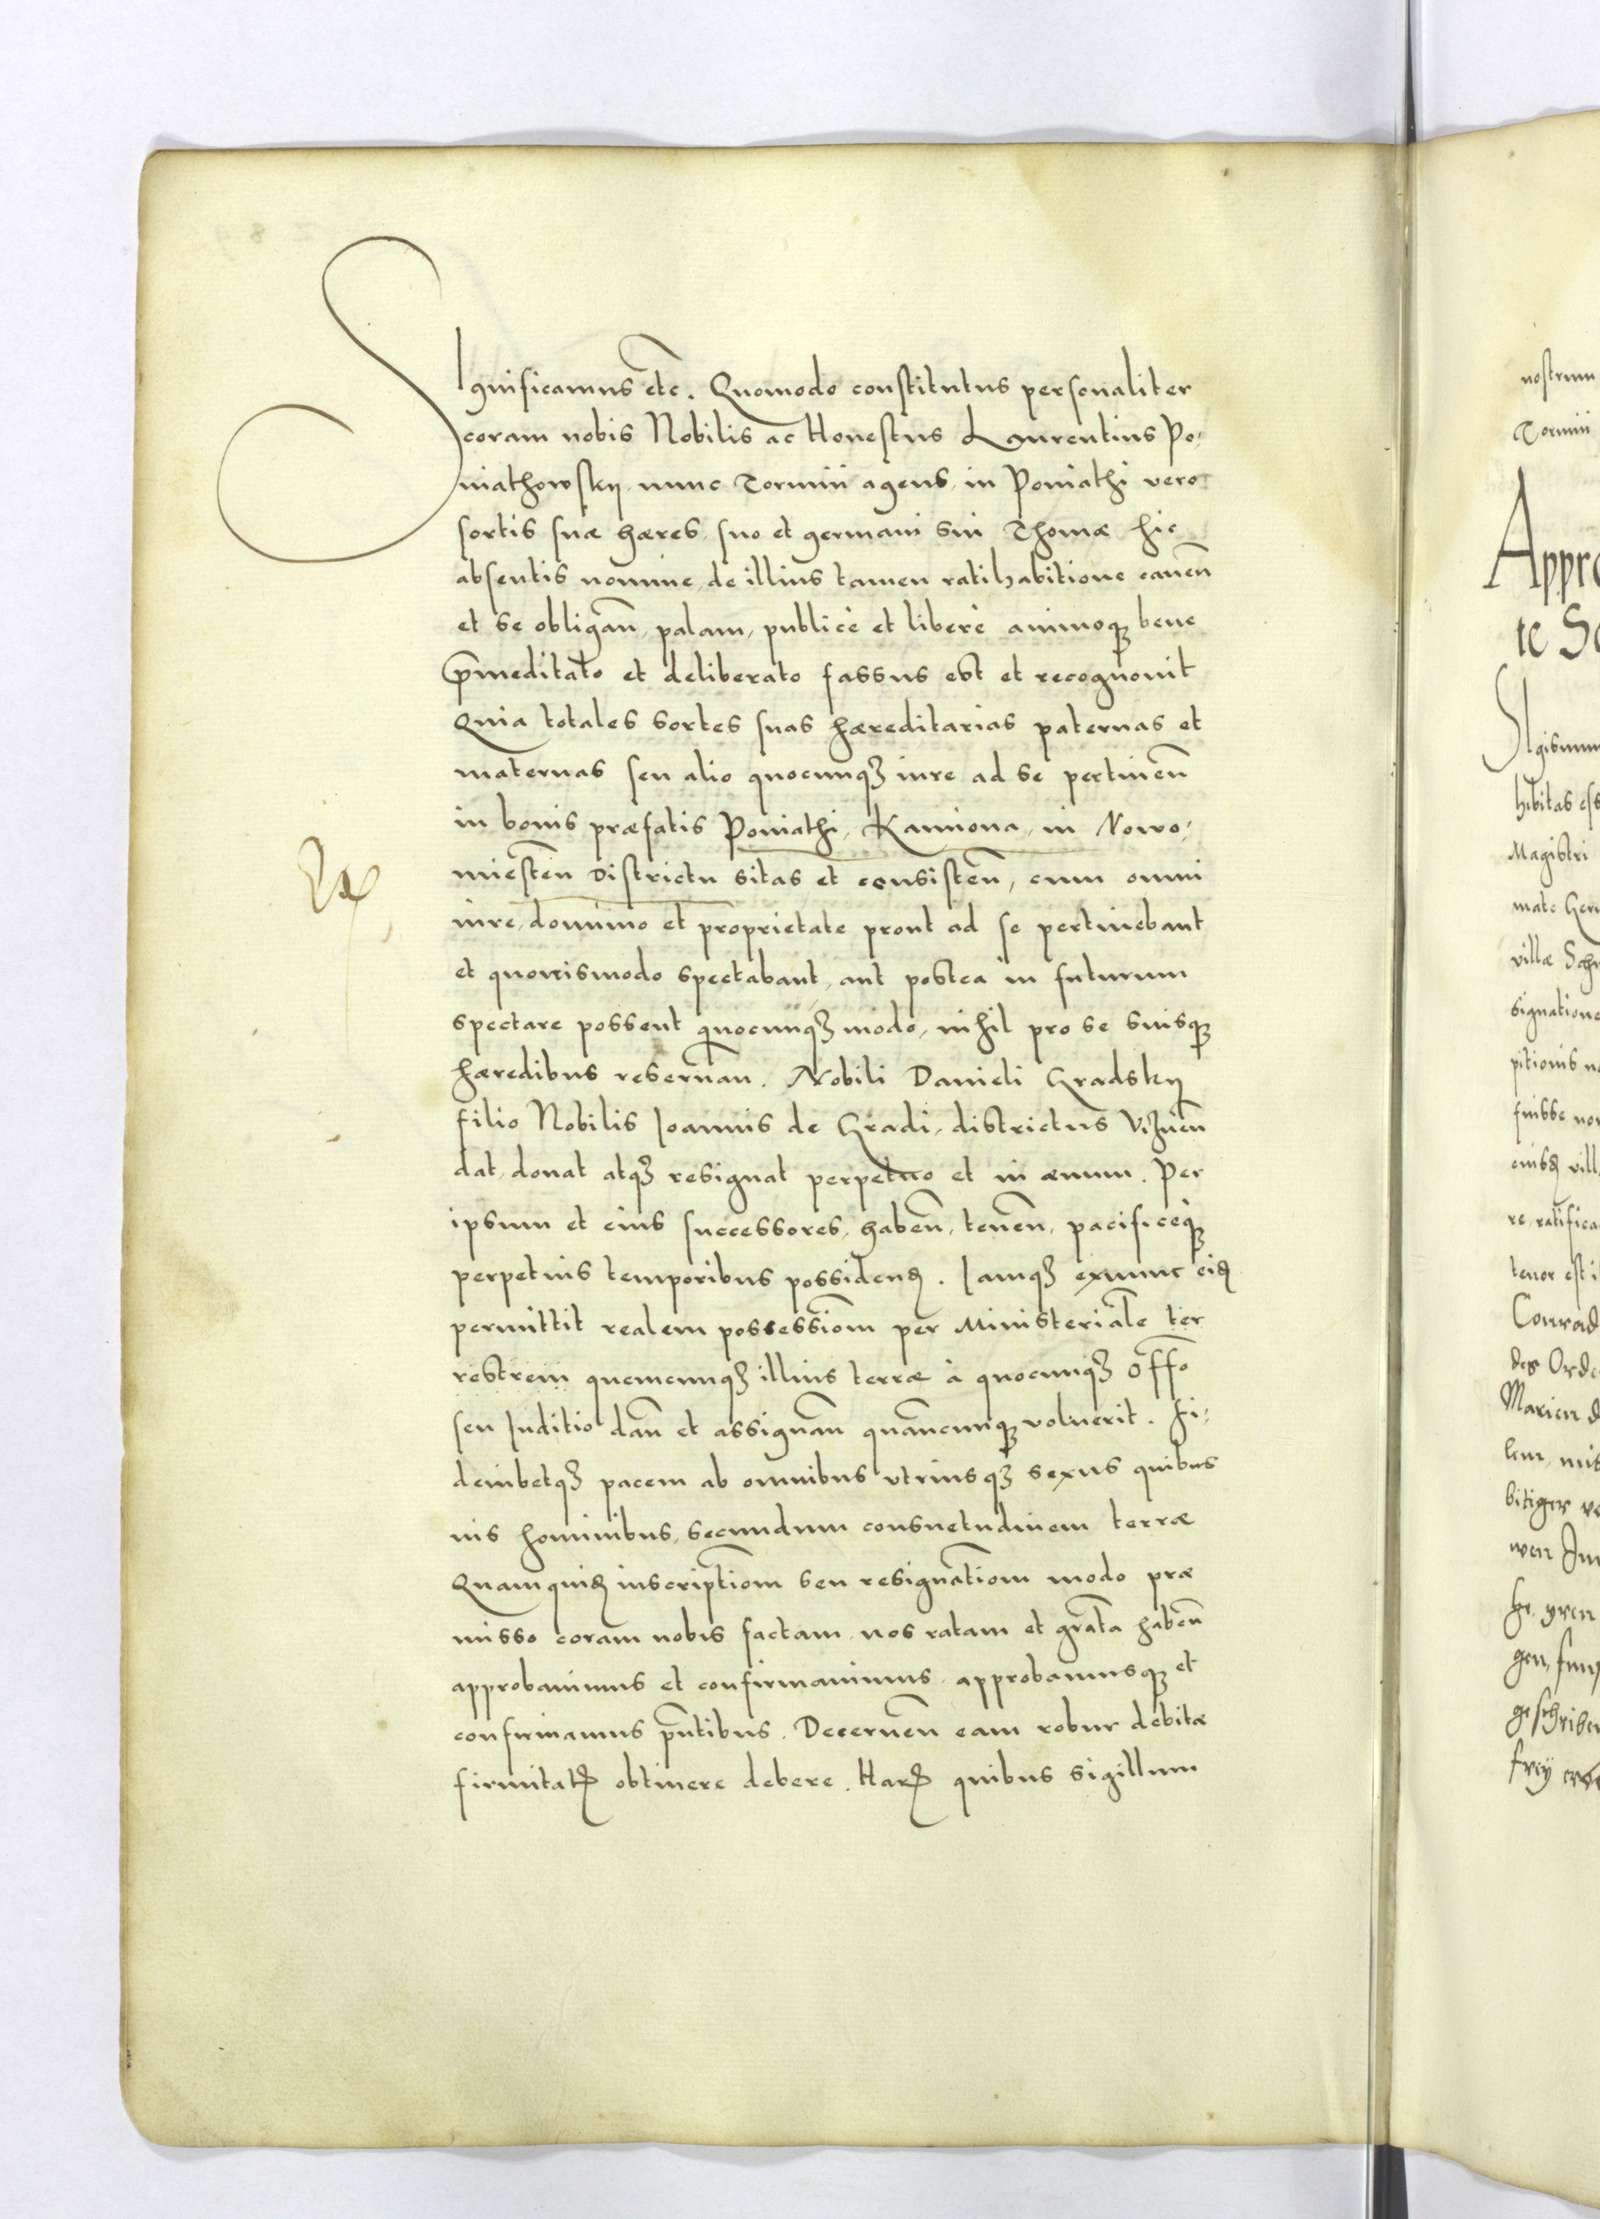 Significamus etc. Quomodo constitutus personaliter
coram nobis Nobilis ac Honestus Laurentius Po-
niathowskij, nunc Torunii agens, in Poniathi vero
sortis suæ hæres, suo et germani sui Thomæ hic
absentis nomine, de illius tamen ratihabitione caueñ
et se obligañ, palam, publicè et liberè animoq bene
p̃meditato et deliberato fassus est et recognouit
Quia totales sortes suas hæreditarias paternas et
maternas seu alio quocunq iure ad se pertineñ
in bonis præfatis Poniathi, Kamiona, in Nowo-
miesteñ Districtu sitas et consisteñ, cum omni
iure, dominio et proprietate prout ad se pertinebant
et quouismodo spectabant, aut postea in futurum
spectare possent quocunq modo, nihil pro se suisq
hæredibus reseruañ. Nobili Danieli Gradskij
filio Nobilis Ioannis de Gradi, districtus Vizneñ
dat, donat atq resignat perpetuo et in æuum. Per
ipsum et eius successores, habeñ, teneñ, pacificeq
perpetuis temporibus possideñ. Iamq exnunc eid
permittit realem possessiom̃ per Ministerialẽ ter
restrem quemcunq illius terræ à quocunq offo
seu Iuditio dañ et assignañ quañcunq voluerit. Fi-
deiubetq pacem ab omnibus vtriusq sexus quibus
uis hominibus, secundum consuetudinem terræ
Quamquid inscriptiom̃ seu resignatiom̃ modo præ
misso coram nobis factam, nos ratam et gratã habeñ
approbauimus et confirmauimus, approbamusq et
confirmamus p̃ntibus. Decerneñ eam robur debitæ
firmitatis obtinere debere. Harum quibus sigillum
nostrum
Torunii
Appro
te Sc
Sigismun
hibitas ess
Magistri
villæ
signatione
pitionis
fuisse non
re, ratifica
tenor est
Conrad
des Orde
Marien
bitiger
geschriben